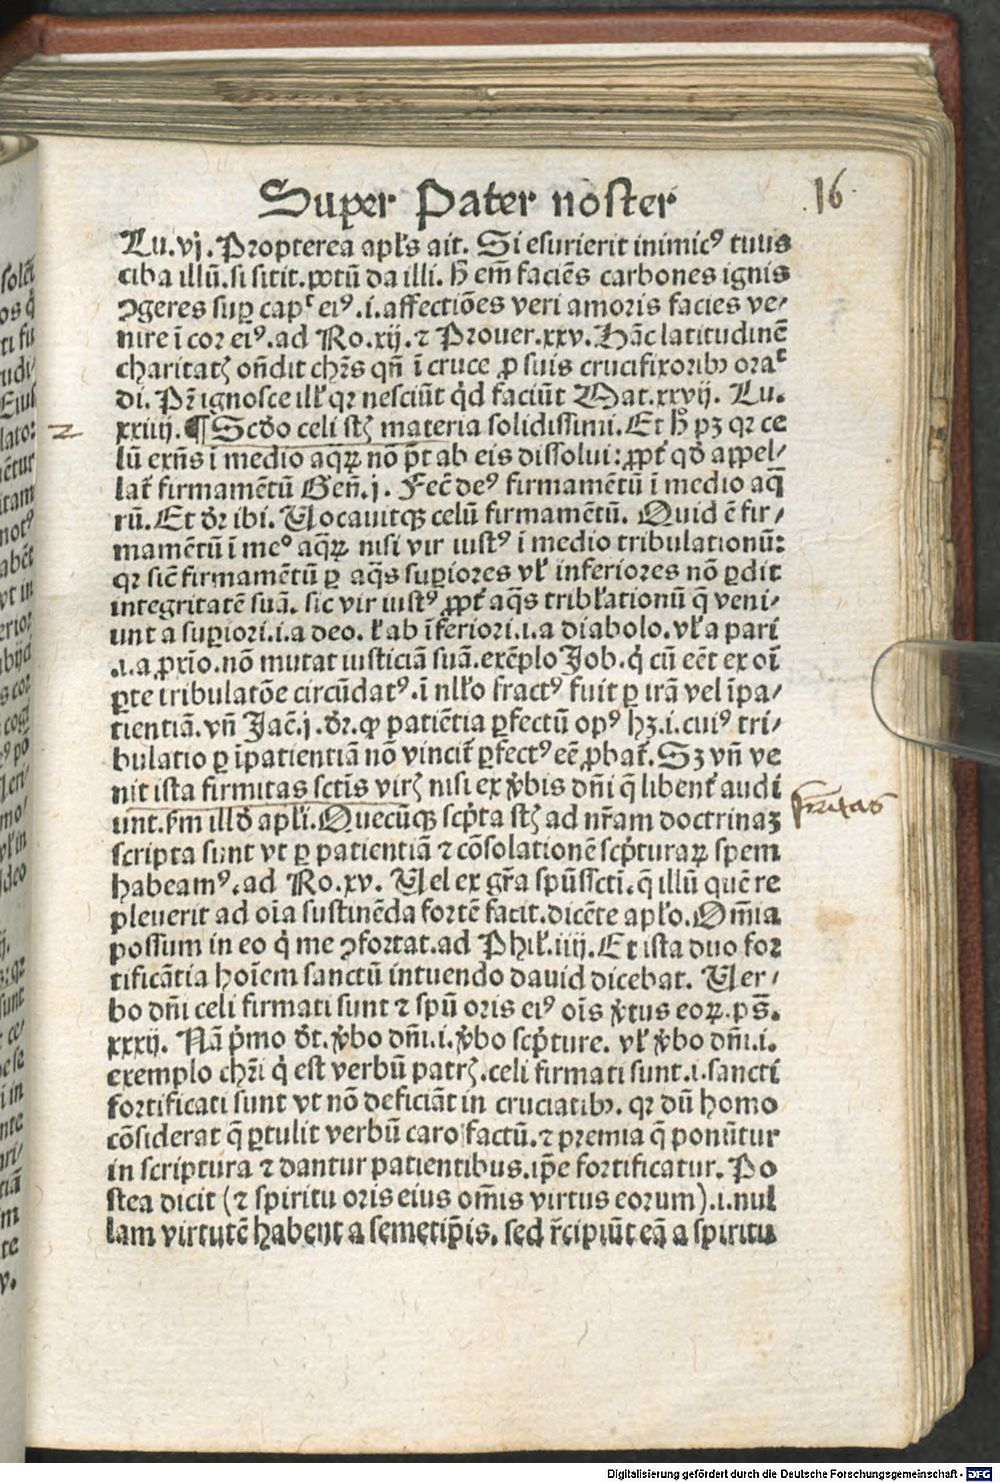 Super Pater noster
16.
Lu.vj. Propterea apl's ait. Si esurierit inimicꝰ tuus
ciba illū. si sitit. potū da illi. h̄ em̄ faciēs carbones ignis
ꝯgeres suꝑ capᶜ eiꝰ .i. affectiões veri amoris facies ve⸗
nire ī cor eiꝰ. ad Ro.xij. ⁊ Prouer.xxv. Hāc latitudinē
charitatꝭ oñdit chr̄s qñ ī cruce ꝓ suis crucifixoribꝰ oraᶜ
di. Pr̄ ignosce ill' qꝛ nesciūt qd̓ faciūt Mat.xxvij. Lu.
2
xxiiij. ¶ Scd̓o celi st̄ꝫ materia solidissimi. Et h̄ pꝫ qꝛ ce
lū exñs ī medio aqꝝ nō p̄t ab eis dissolui: ꝓpt̓ qd̓ appel⸗
lat̓ firmamētū Geñ.j. Fec̄ deꝰ firmamētū ī medio aq̄
rū. Et d̓r ibi. Vocauitqꝫ celū firmamētū. Quid ē fir⸗
mamētū ī meᵒ aq̄ꝝ nisi vir iustꝰ ī medio tribulationū:
qꝛ sic̄ firmamētū ꝑ aq̄s suꝑiores vl' inferiores nō ꝑdit
integritatē suā. sic vir iustꝰ ꝓpt̓ aq̄s tribl'ationū q̄ veni⸗
unt a suꝑiori .i. a deo. l' ab īferiori .i. a diabolo. vl' a pari
.i. a ꝓxīo. nō mutat iusticiā suā. exēplo Job. q̓ cū eēt ex oī
ꝑte tribulatōe circūdatꝰ. ī nl'lo fractꝰ fuit ꝑ irā vel īpa⸗
tientiā. vñ Jac̄.j. d̓r. ꝙ patiētia ꝑfectū opꝰ hꝫ .i. cuiꝰ tri⸗
bulatio ꝑ īpatientiā nō vincit̓ ꝑfectꝰ eē ꝓbat̓. Sꝫ vñ ve
nit ista firmitas sctīs virꝭ nisi ex v̓bis dñi q̄ libent̓ audi
firmitas
unt. ẜm illd̓ apl'i. Quecūqꝫ scp̓ta st̄ꝫ ad nr̄am doctrinaꝫ
scripta sunt vt ꝑ patientiā ⁊ cōsolationē scp̓turaꝝ spem
habeamꝰ. ad Ro.xv. Vel ex gr̄a spūssctī. q̄ illū quē re
pleuerit ad oīa sustinēda fortē facit. dicēte apl'o. Om̄ia
possum in eo q̓ me ꝯfortat. ad Phil'.iiij. Et ista duo for
tificātia hoīem sanctū intuendo dauid dicebat. Ver⸗
bo dñi celi firmati sunt ⁊ spū oris eiꝰ oīs v̓tus eoꝝ. ps̄.
xxxij. Nā p̓mo d̓t. v̓bo dñi .i. v̓bo scp̓ture. vl' v̓bo dñi .i.
exemplo chr̄i q̓ est verbū patrꝭ. celi firmati sunt .i. sancti
fortificati sunt vt nō deficiāt in cruciatibꝰ. qꝛ dū homo
cōsiderat q̄ ꝑtulit verbū caro factū. ⁊ premia q̄ ponūtur
in scriptura ⁊ dantur patientibus. ip̄e fortificatur. Po
stea dicit (⁊ spiritu oris eius om̄is virtus eorum) .i. nul
lam virtutē habent a semetip̄is. sed r̄cipiūt eā a spiritu
Digitalisierung gefördert durch die Deutsche Forschungsgemeinschaft - DFG